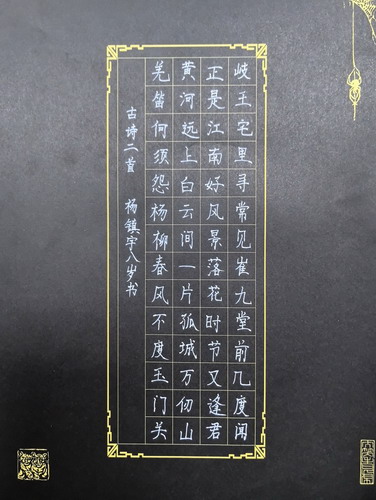 岐王宅里寻常见崔九堂前几度闻
正是江南好风景落花时节又逢君
黄河远上白云间一片孤城万仞山
羌笛何须怨杨柳春风不度玉门关
古诗二首 杨镇宇八岁书